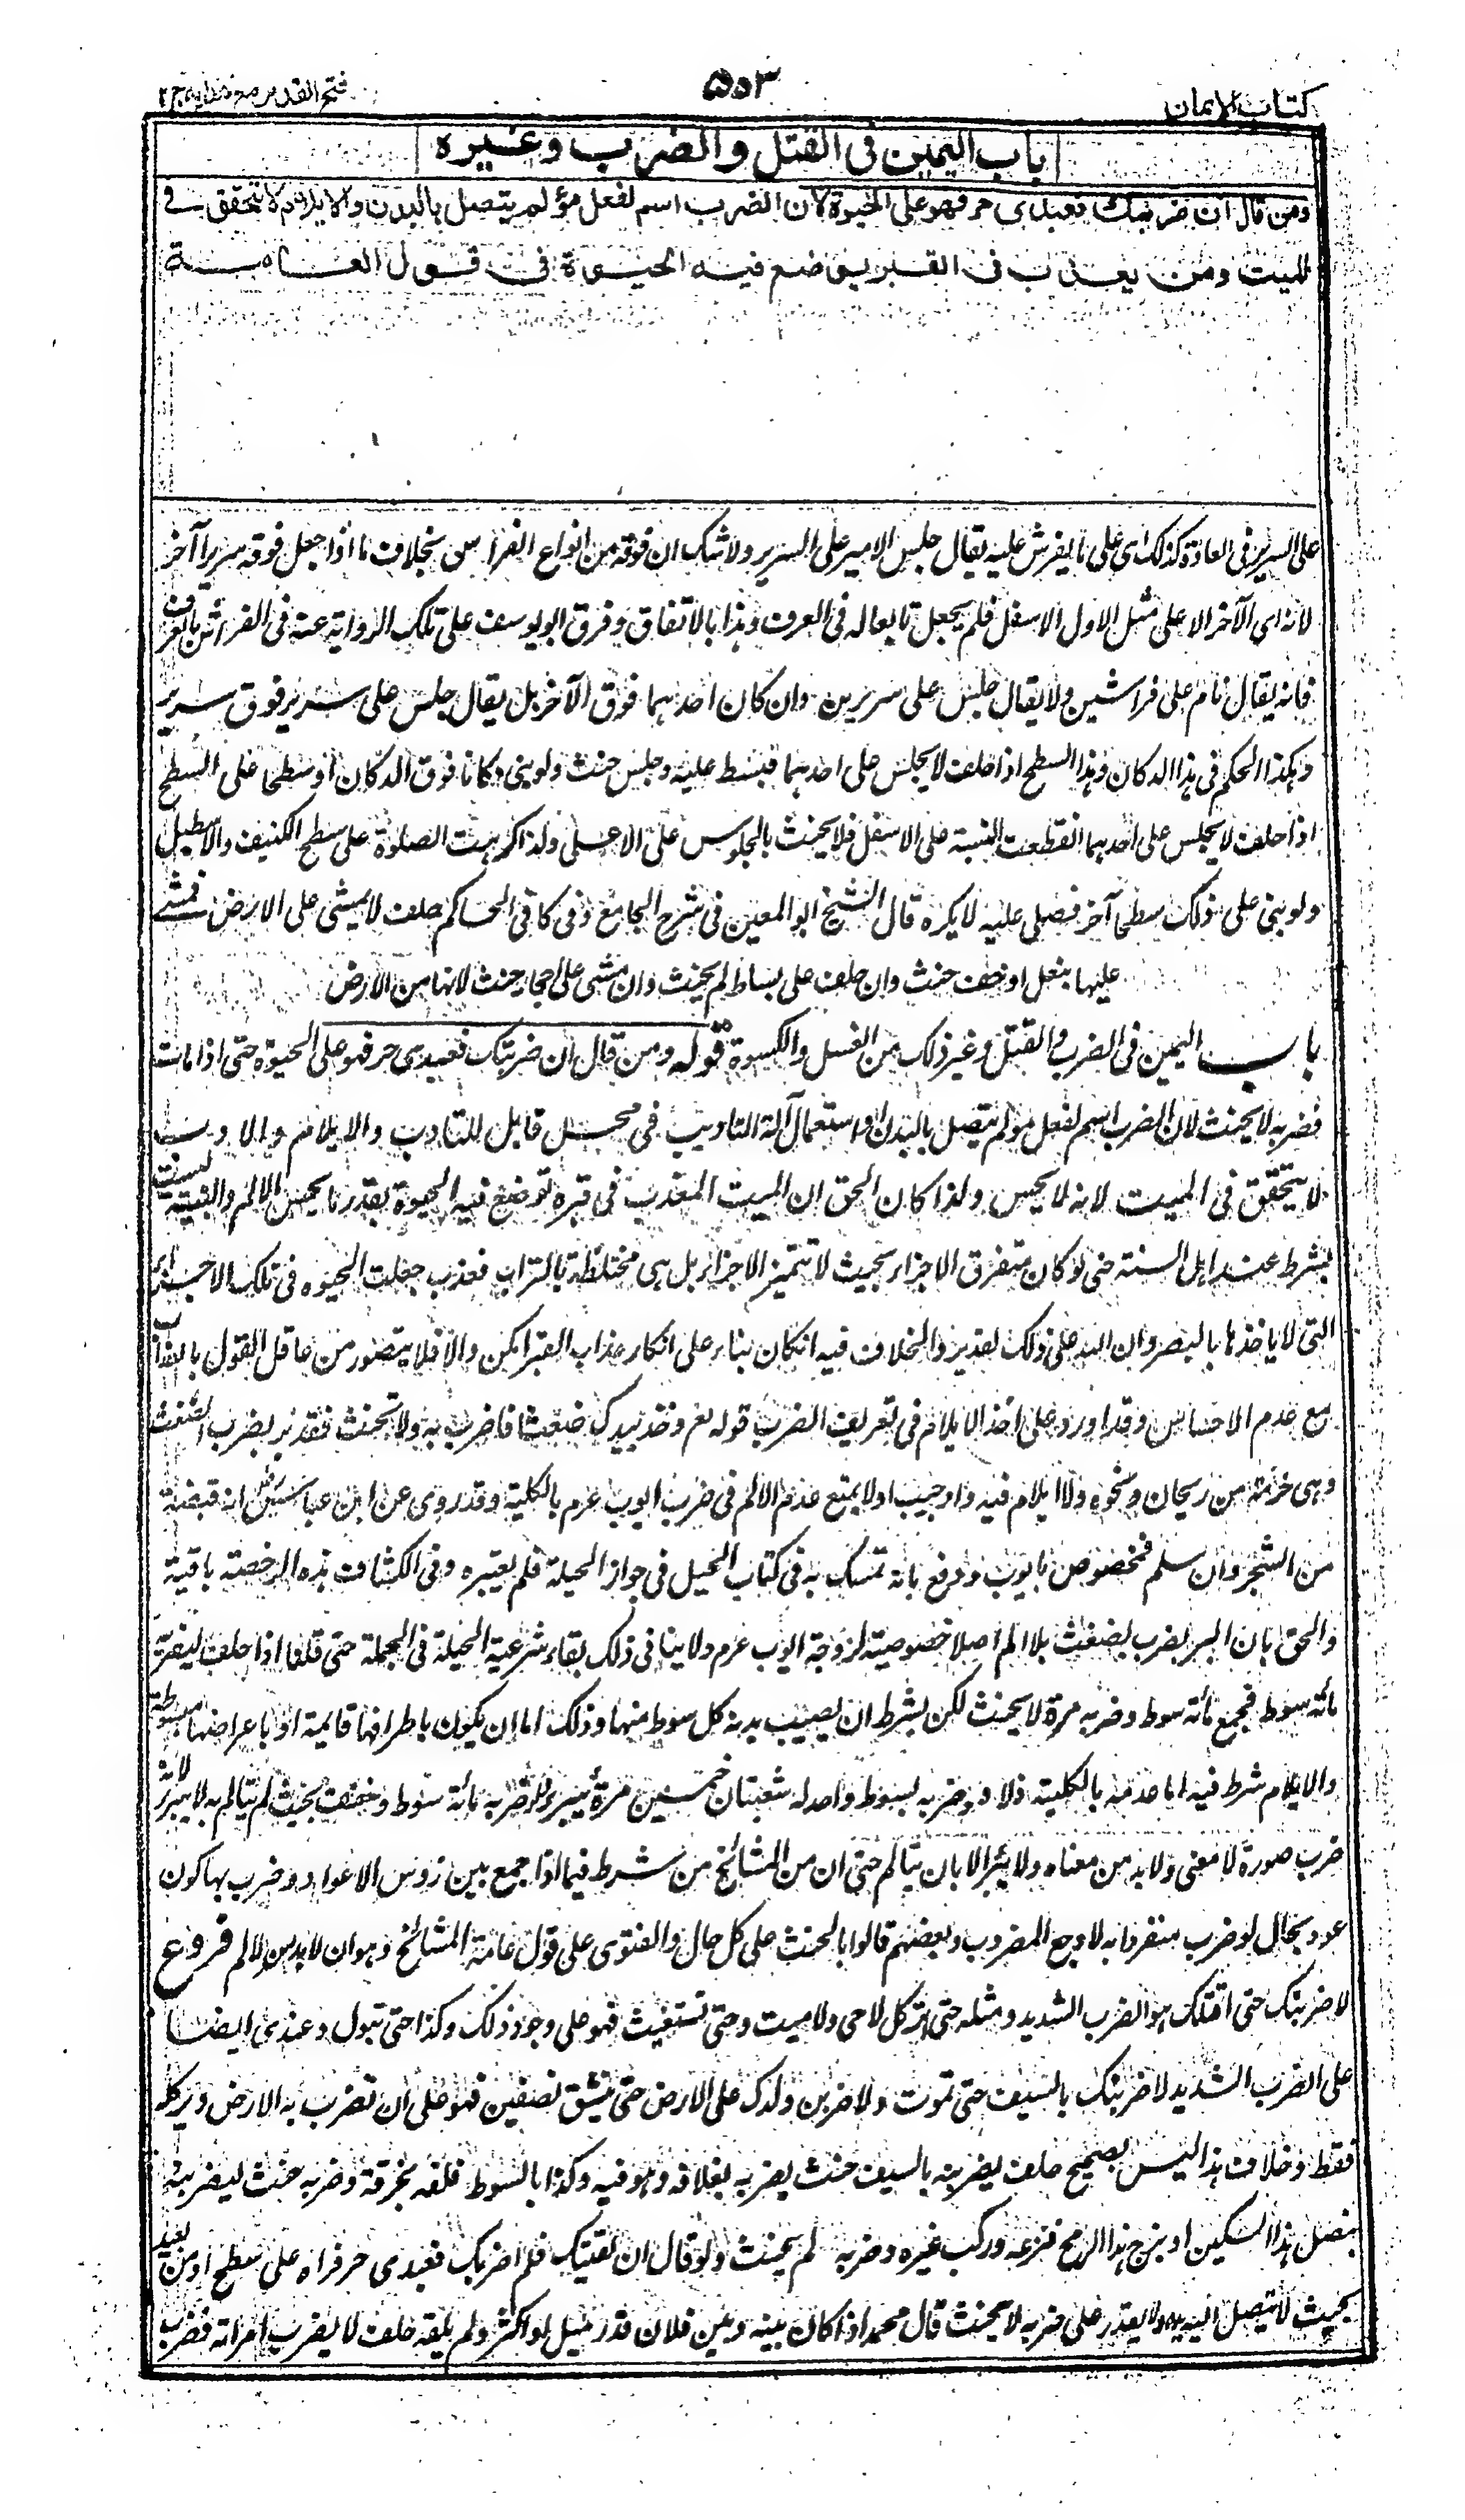 كتاب الايمان
۵۵۳
فتح القدير مع هداية ج ٢
باب اليمين في القتل والضرب وغيره
ومن قال ان ضربتك فعبدي حر فهو على الحيوة لان الضرب اسم لفعل مؤلم يتصل بالبدن والايلام لا يتحقق في
الميت ومن يعذب في القبر يوضع فيه الحيوة في قول العامة
على السرير في العادة كذلك اى على ما يفرش عليه يقال جلس الامير على السرير ولا شك ان فوقه من انواع الفراش بخلاف ما اذا جعل فوقه سريرا آخر
لانه اى الآخر الا على مثل الاول الاسفل فلم يجعل تابعا له فى العرف وهذا بالاتفاق وفرق ابو يوسف على تلك الرواية عنه فى الفراش بالعرف
فانه يقال نام على فراشين ولا يقال جلس على سريرين وان كان احدهما فوق الآخر بل يقال جلس على سرير فوق سرير
وهكذا الحكم فى هذا الدكان وهذا السطح اذا حلف لا يجلس على احدهما فبسط عليه وجلس حنث ولو بنى دكانا فوق الدكان او سطحا على السطح
اذا حلف لا يجلس على احدهما انقطعت النسبة على الاسفل فلا يحنث بالجلوس على الاعلى ولذا كرهت الصلوة على سطح الكنيف والاسطبل
ولو بنى على ذلك سطحا آخر فصلى عليه لا يكره قال الشيخ ابو المعين فى شرح الجامع وفى كافى الحاكم حلف لا يمشى على الارض فمشى
عليها بنعل او خف حنث وان حلف على بساط لم يحنث وان مشى على احجار حنث لانها من الارض
باب اليمين فى الضرب والقتل وغير ذلك من الغسل والكسوة قوله ومن قال ان ضربتك فعبدى حر فهو على الحيوة حتى اذا مات
فضربه لا يحنث لان الضرب اسم لفعل مولم يتصل بالبدن او استعمال آلة التاديب فى محل قابل للتاديب والايلام والادب
لا يتحقق فى الميت لانه لا يحس ولذا كان الحق ان الميت المعذب فى قبره توضع فيه الحيوة بقدر ما يحس الالم والبنية ليست
بشرط عند اهل السنة حتى لو كان متفرق الاجزاء بحيث لا تتميز الاجزاء بل هى مختلطة بالتراب فعذب جعلت الحيوة فى تلك الاجزاء
التى لا ياخذها بالبصر وان الله على ذلك لقدير والخلاف فيه ان كان بناء على انكار عذاب القبر امكن والا فلا يتصور من عاقل القول بالعذاب
مع عدم الاحساس وقد اورد على اخذ الايلام فى تعريف الضرب قوله تعم وخذ بيدك ضغثا فاضرب به ولا تحنث فقد بر بضرب الضغث
وهى حزمة من ريحان ونحوه ولا ايلام فيه واجيب اولا بمنع عدم الالم فى ضرب ايوب عرم بالكلية وقد روى عن ابن عباس انه قبضة
من الشجر وان سلم فمخصوص بايوب ودفع بانه تمسك به فى كتاب الحيل فى جواز الحيلة فلم يعتبره وفى الكشاف هذه الرخصة باقية
والحق بان البر بضرب بضغث بلا الم اصلا خصوصية لزوجة ايوب عرم ولا ينافى ذلك بقاء شرعية الحيلة فى الجملة حتى قلنا اذا حلف ليضربن
مائة سوط فجمع مائة سوط وضربه مرة لا يحنث لكن بشرط ان يصيب بدنه كل سوط منها وذلك اما ان يكون باطرافها قايمة او باعراضها مبسوطة
والايلام شرط فيه اما عدمه بالكلية فلا وضربه بسوط واحد له شعبتان خمسين مرة يبر ولو ضربه مائة سوط وخفف بحيث لم يتالم به لا يبر لانه
ضرب صورة لا معنى ولا بد من معناه ولا يبر الا بان يتالم حتى ان من المشائخ من شرط فيما اذا جمع بين رؤس الاعواد وضرب بها كون
عود بحال لو ضرب منفردا به لاوجع المضروب وبعضهم قالوا بالحنث على كل حال والفتوى على قول عامة المشائخ وهو ان لا بد من الالم فروع
لاضربنك حتى اقتلك هو الضرب الشديد ومثله حتى اتركك لا حى ولا ميت وحتى تستغيث فهو على وجود ذلك وكذا حتى تبول وعندى ايضا
على الضرب الشديد لاضربنك بالسيف حتى تموت ولاضربن ولدك على الارض حتى ينشق نصفين فهو على ان تضرب به الارض ويركله
فقط وخلاف هذا ليس بصحيح حلف ليضربنه بالسيف حنث بضربه بغلافه وهو فيه وكذا بالسوط فلفه بخرقة وضربه حنث ليضربنه
بنصل هذا السكين او بزج هذا الرمح فنزعه وركب غيره وضربه لم يحنث ولو قال ان لقيتك فلم اضربك فعبدى حر فراه على سطح او من بعيد
بحيث لا تتصل اليه يده ولا يقدر على ضربه لا يحنث قال محمد اذا كان بينه وبين فلان قدر ميل او اكثر ولم يلقه حلف لا يضرب امراته فضرب